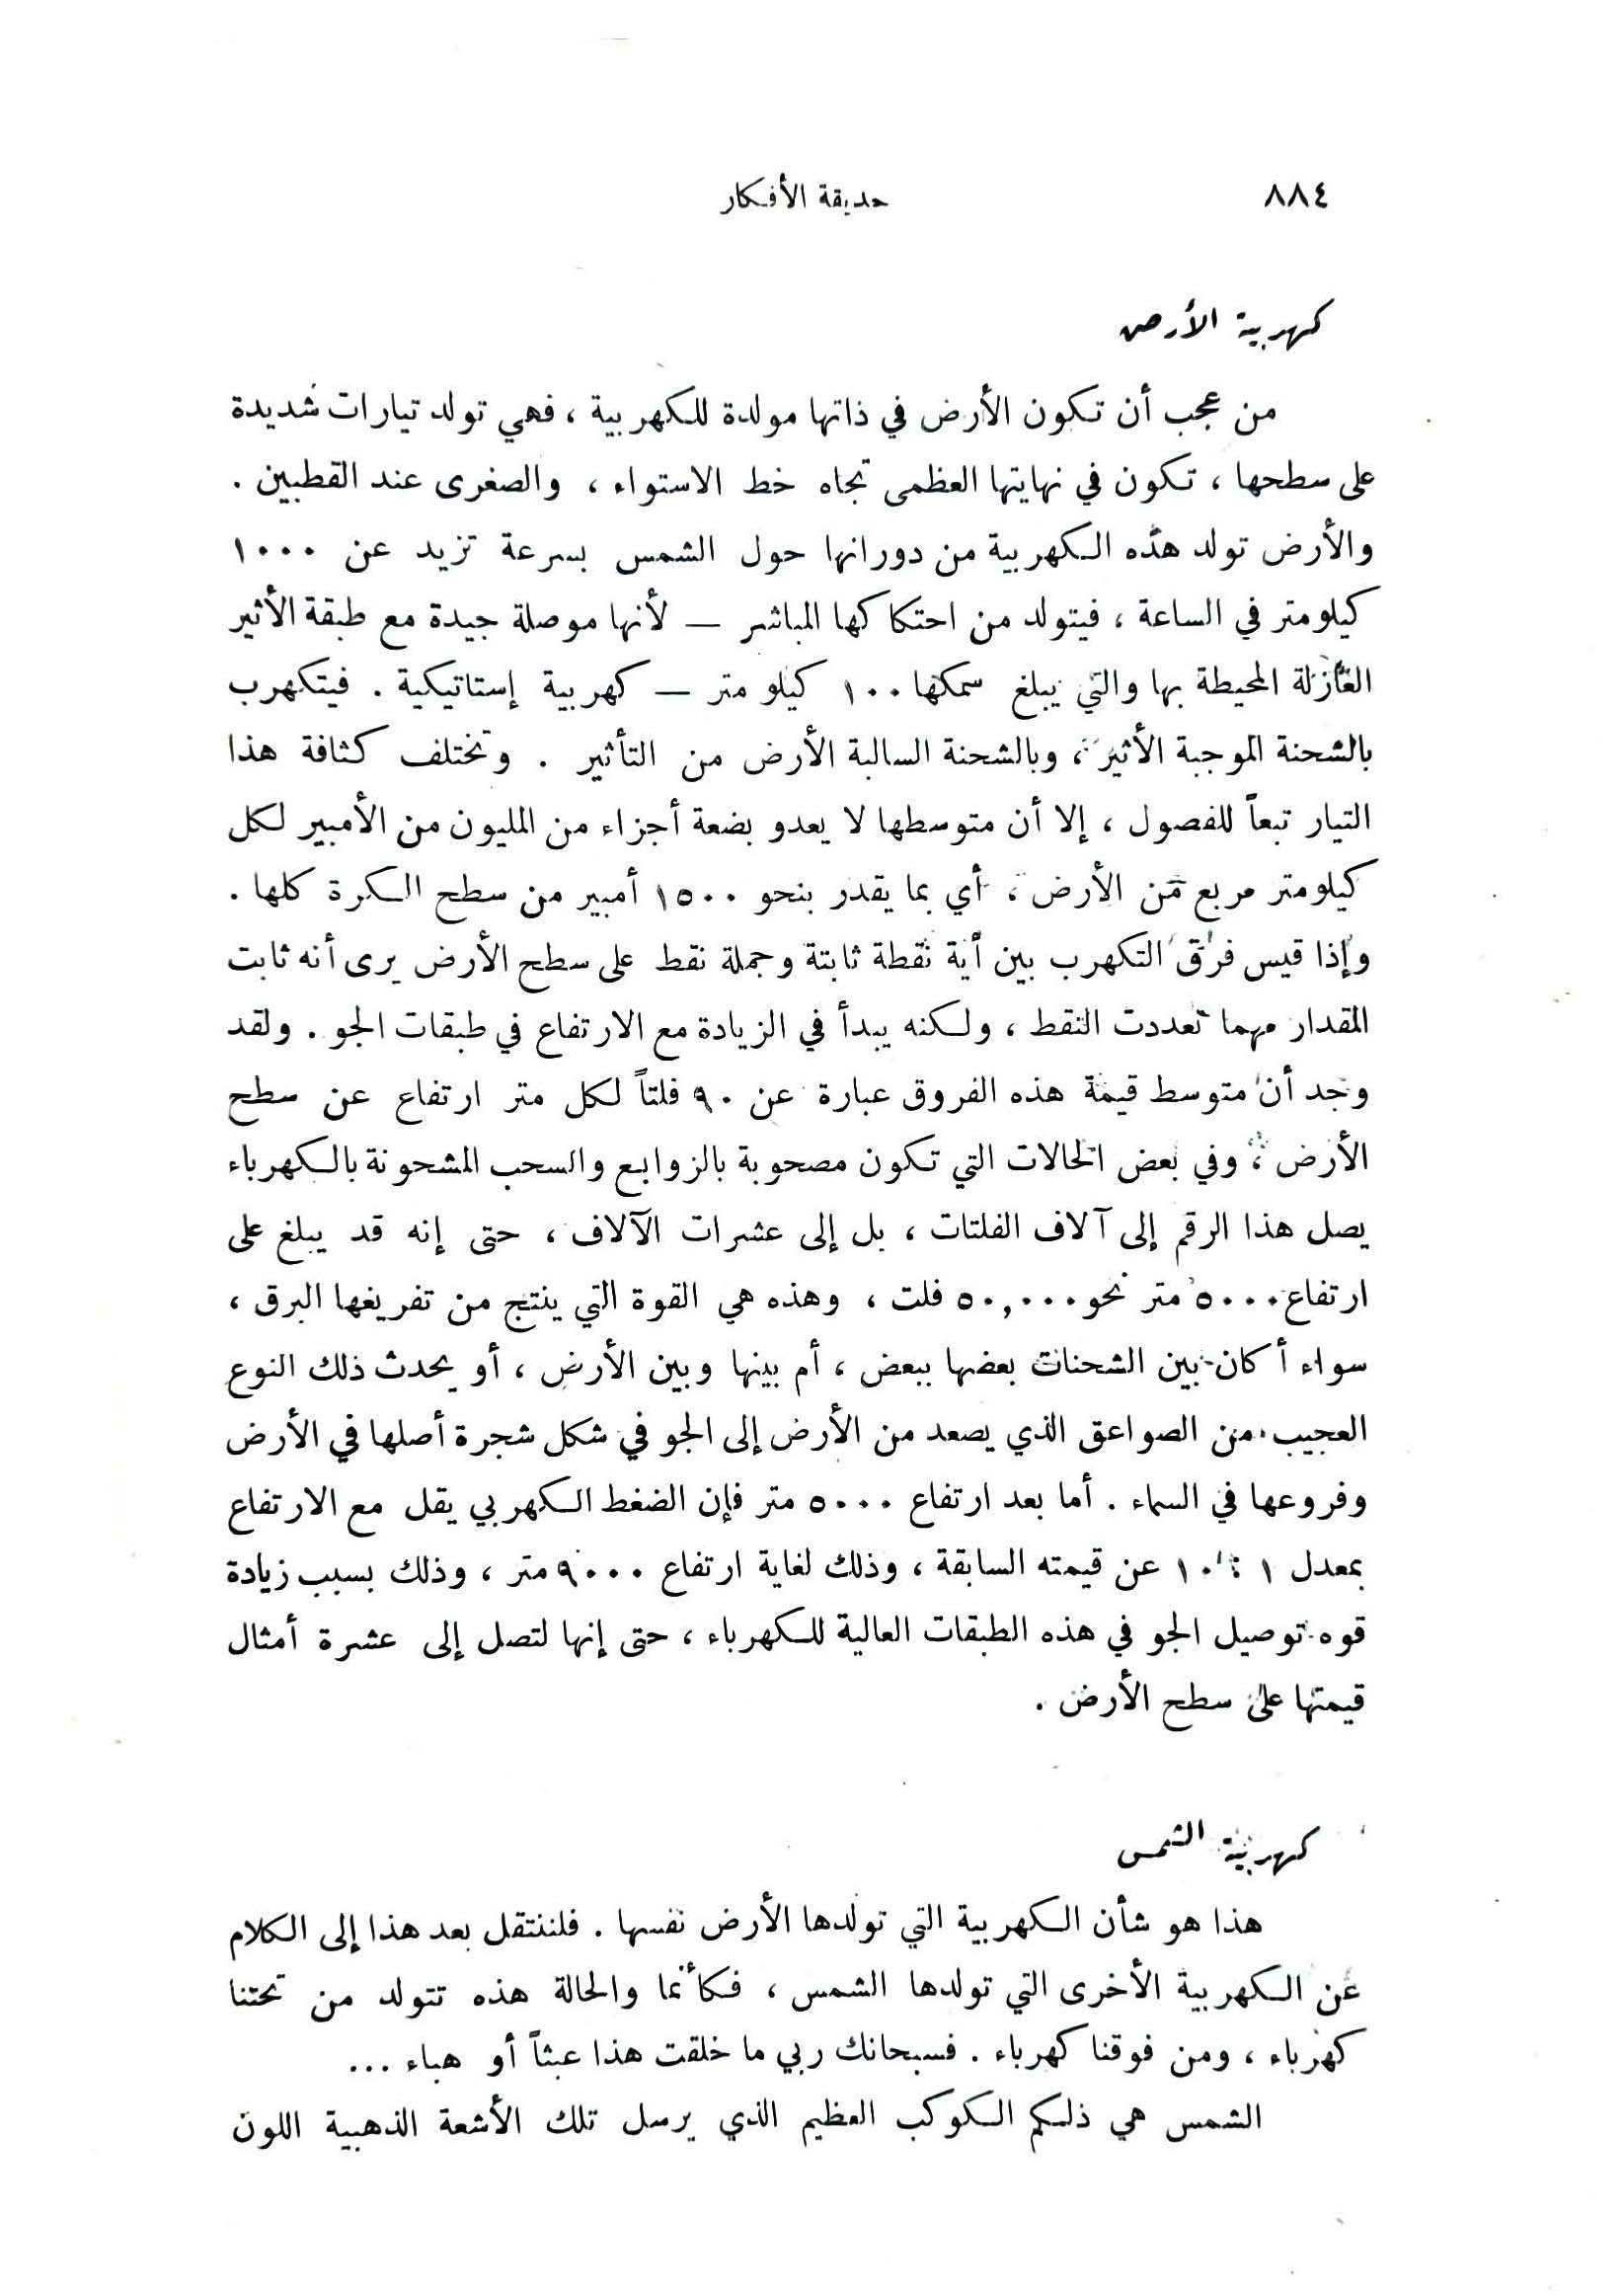 ٨٨٤
حديقة الأفكار
كهربية الأرض
من عجب أن تكون الأرض في ذاتها مولدة للكهربية ، فهي تولد تيارات شديدة
على سطحها ، تكون في نهايتها العظمى تجاه خط الاستواء ، والصغرى عند القطبين .
والأرض تولد هذه الكهربية من دورانها حول الشمس بسرعة تزيد عن ١٠٠٠
كيلومتر في الساعة ، فيتولد من احتكاكها المباشر — لأنها موصلة جيدة مع طبقة الأثير
العازلة المحيطة بها والتي يبلغ سمكها ١٠٠ كيلو متر — كهربية إستاتيكية . فيتكهرب
بالشحنة الموجبة الأثير ، وبالشحنة السالبة الأرض من التأثير . وتختلف كثافة هذا
التيار تبعاً للفصول ، إلا أن متوسطها لا يعدو بضعة أجزاء من المليون من الأمبير لكل
كيلومتر مربع من الأرض ، أي بما يقدر بنحو ١٥٠٠ أمبير من سطح الكرة كلها .
وإذا قيس فرق التكهرب بين أية نقطة ثابتة وجملة نقط على سطح الأرض يرى أنه ثابت
المقدار مهما تعددت النقط ، ولكنه يبدأ في الزيادة مع الارتفاع في طبقات الجو . ولقد
وجد أن متوسط قيمة هذه الفروق عبارة عن ٩٠ فلتاً لكل متر ارتفاع عن سطح
الأرض ، وفي بعض الحالات التي تكون مصحوبة بالزوابع والسحب المشحونة بالكهرباء
يصل هذا الرقم إلى آلاف الفلتات ، بل إلى عشرات الآلاف ، حتى إنه قد يبلغ على
ارتفاع ٥٠٠٠ متر نحو ٥٠,٠٠٠ فلت ، وهذه هي القوة التي ينتج من تفريغها البرق ،
سواء أكان بين الشحنات بعضها ببعض ، أم بينها وبين الأرض ، أو يحدث ذلك النوع
العجيب من الصواعق الذي يصعد من الأرض إلى الجو في شكل شجرة أصلها في الأرض
وفروعها في السماء . أما بعد ارتفاع ٥٠٠٠ متر فإن الضغط الكهربي يقل مع الارتفاع
بمعدل ١ : ١٠ عن قيمته السابقة ، وذلك لغاية ارتفاع ٩٠٠٠ متر ، وذلك بسبب زيادة
قوه توصيل الجو في هذه الطبقات العالية للكهرباء ، حتى إنها لتصل إلى عشرة أمثال
قيمتها على سطح الأرض .
كهربية الشمس
هذا هو شأن الكهربية التي تولدها الأرض نفسها . فلننتقل بعد هذا إلى الكلام
عن الكهربية الأخرى التي تولدها الشمس ، فكأنما والحالة هذه تتولد من تحتنا
كهرباء ، ومن فوقنا كهرباء . فسبحانك ربي ما خلقت هذا عبثاً أو هباء ...
الشمس هي ذلكم الكوكب العظيم الذي يرسل تلك الأشعة الذهبية اللون